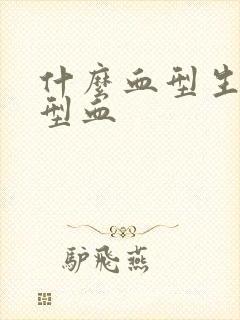 什麼血型生
型血
驴飛燕